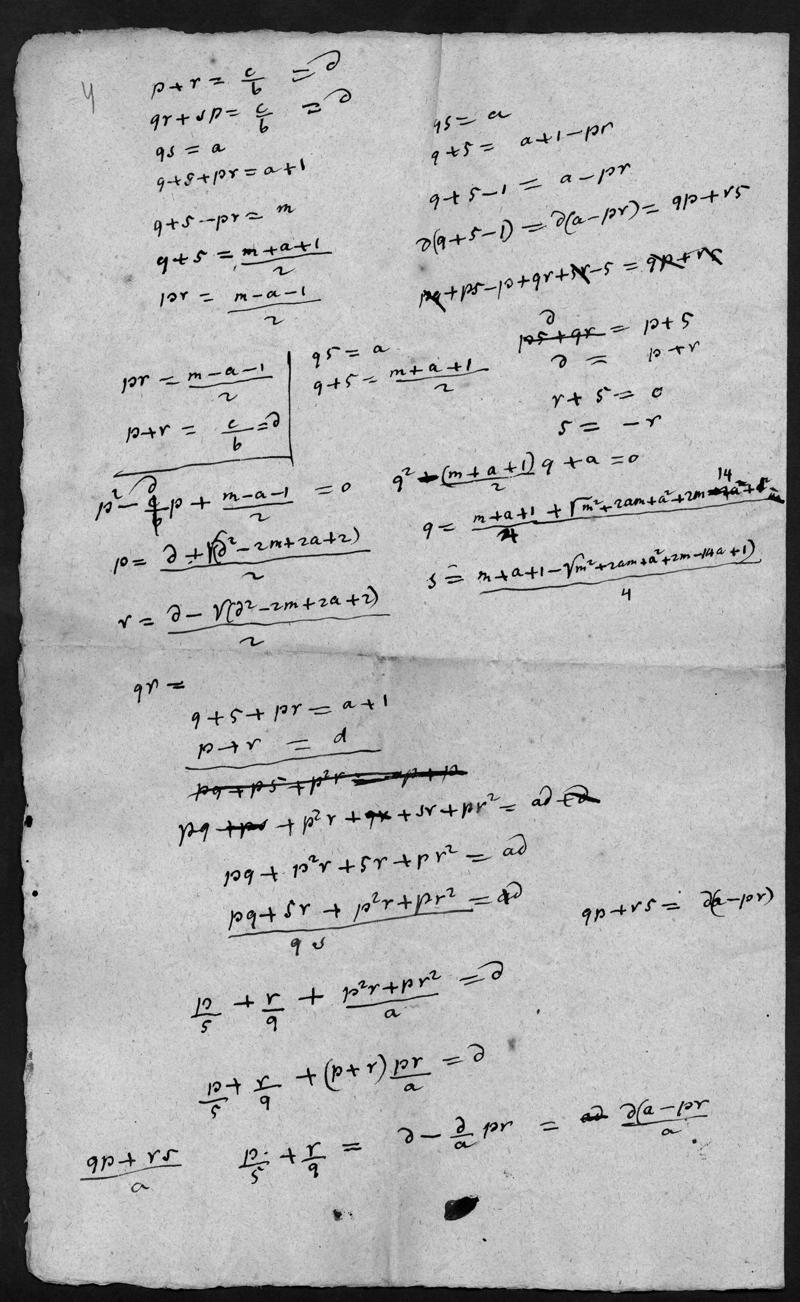 4
p+r = c/b = ∂
qr+sp = c/b = ∂
qs = a
q+s+pr = a+1
q+s-pr = m
q+s = m+a+1/2
pr = m-a-1/2
qs = a
q+s = a+1-pr
q+s-1 = a-pr
∂(q+s-1) = ∂(a-pr) = qp+rs
pq+ps-p+qr+sr-s = qp+rs
∂
ps+qr = p+s
∂ = p+r
r+s = 0
s = -r
pr = m-a-1/2
p+r = c/b = ∂
qs = a
q+s = m+a+1/2
p²-∂p + m-a-1/2 = 0
p = ∂+√(∂²-2m+2a+2)/2
r = ∂-√(∂²-2m+2a+2)/2
q² - (m+a+1)/2 q + a = 0
q = m+a+1 + √m²+2am+a²+2m-14/4
s = m+a+1-√m²+2am+a²+2m-14a+1)/4
qr =
q+s+pr = a+1
p+r = d
pq+ps+p²r = ap+p
pq+ps+p²r+qr+sr+pr² = a∂+∂
pq+p²r+sr+pr² = a∂
pq+sr+p²r+pr²/qs = a∂
qp+rs = ∂(a-pr)
p/s + r/q + p²r+pr²/a = ∂
p/s + r/q + (p+r)pr/a = ∂
qp+rs/a
p/s + r/q = ∂ - ∂/a pr = a∂ ∂(a-pr/a